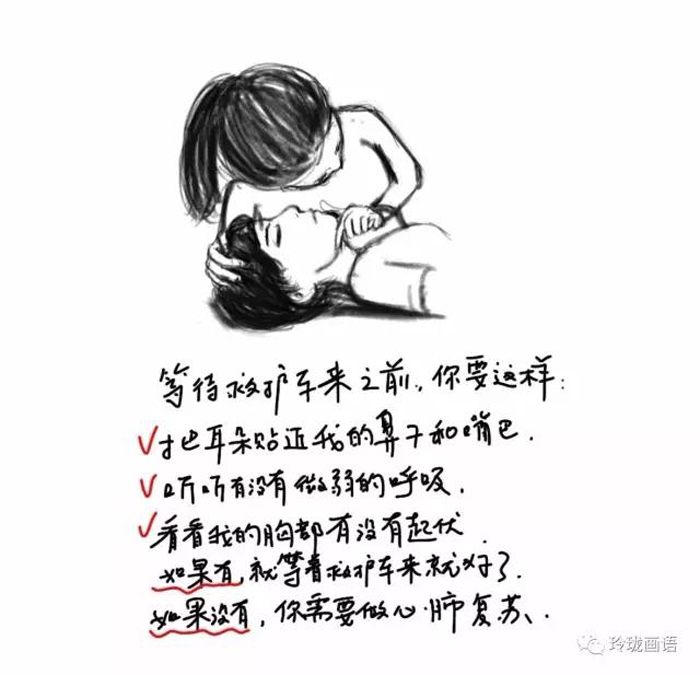 等待救护车来之前，你要这样：
把耳朵贴近我的鼻子和嘴巴．
听听有没有微弱的呼吸．
看看我的胸部有没有起伏
如果有，就等着救护车来就好了．
如果没有，你需要做心肺复苏．
玲珑画语